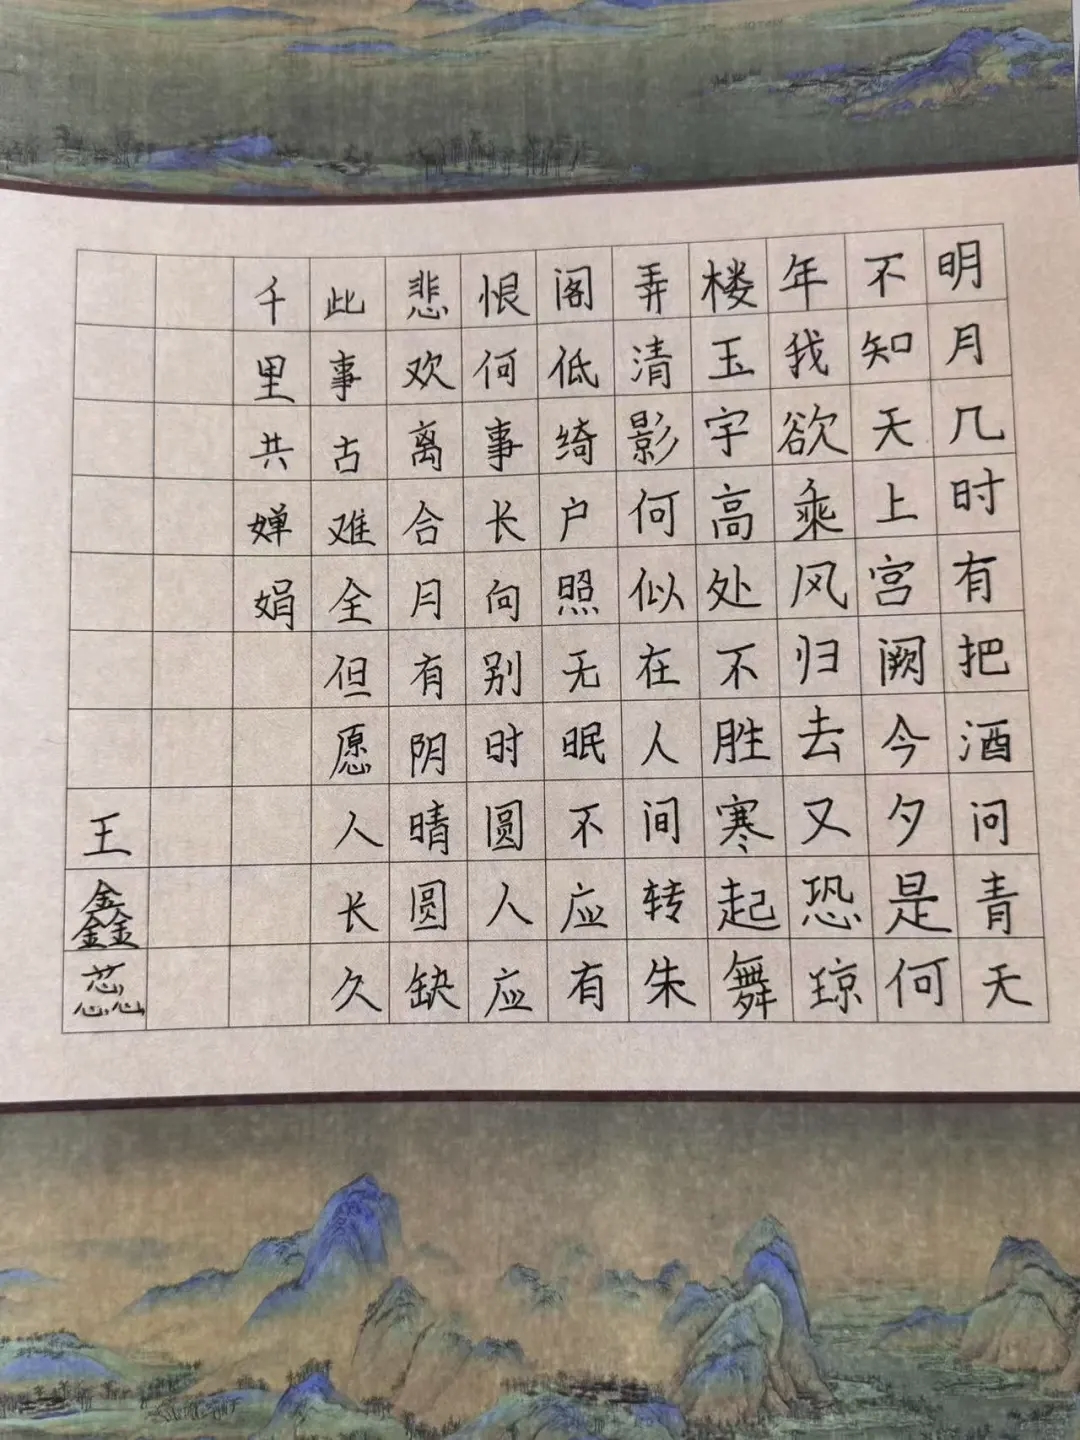 明月几时有把酒问青天
不知天上宫阙今夕是何
年我欲乘风归去又恐琼
楼玉宇高处不胜寒起舞
弄清影何似在人间转朱
阁低绮户照无眠不应有
恨何事长向别时圆人应
悲欢离合月有阴晴圆缺
此事古难全但愿人长久
千里共婵娟
王鑫惢